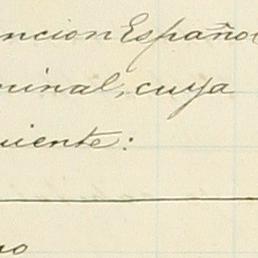 ncion Español
minal, cuya
uiente:
no